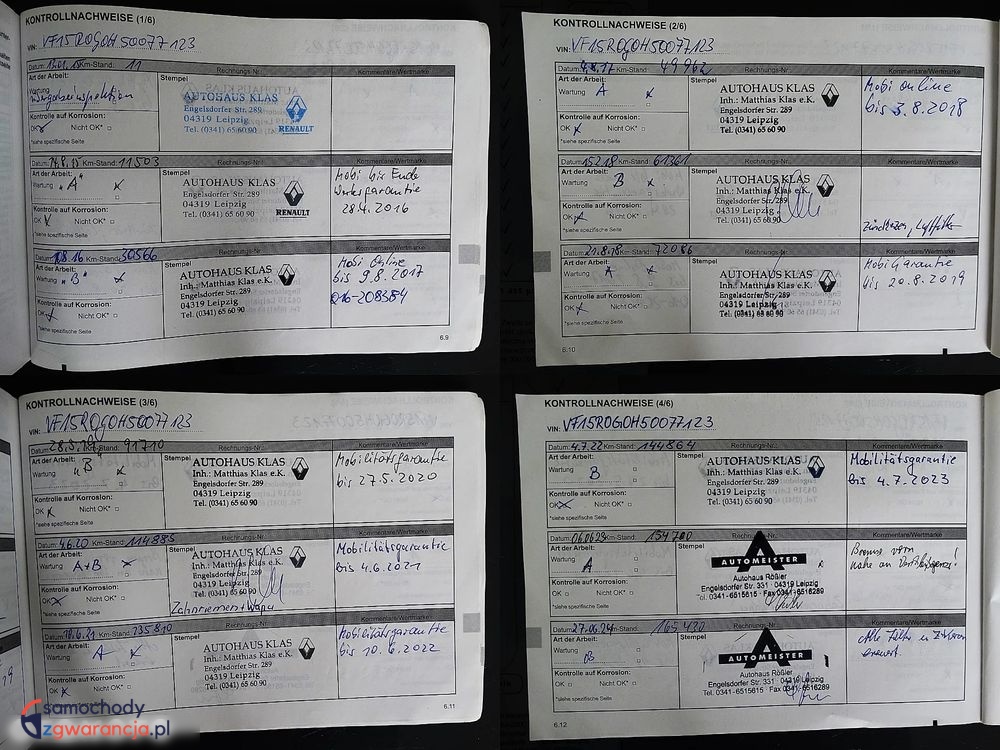 KONTROLLNACHWEISE (1/6)
VIN: VF15R0G0H50077123
Datum: Km-Stand: 11 Rechnungs-Nr.: Kommentare/Wertmarke
Art der Arbeit: Stempel
Wartung
AUTOHAUS KLAS
Engelsdorfer Str. 289
04319 Leipzig
Tel. (0341) 65 60 90
RENAULT
Kontrolle auf Korrosion:
OK Nicht OK*
*siehe spezifische Seite
Datum: 14.8.15 Km-Stand: 11503 Rechnungs-Nr.: Kommentare/Wertmarke
Art der Arbeit: Stempel
Wartung "A" x
AUTOHAUS KLAS
Engelsdorfer Str. 289
04319 Leipzig
Tel. (0341) 65 60 90
RENAULT
Mobi bis Ende
28.4.2016
Kontrolle auf Korrosion:
OK x Nicht OK*
*siehe spezifische Seite
Datum: Km-Stand: 30566 Rechnungs-Nr.: Kommentare/Wertmarke
Art der Arbeit: Stempel
Wartung "B" x
AUTOHAUS KLAS
Inh.: Matthias Klas e.K.
Engelsdorfer Str. 289
04319 Leipzig
Tel. (0341) 65 60 90
Mobi Online
bis 9.8.2017
Q16-208384
Kontrolle auf Korrosion:
OK x Nicht OK*
*siehe spezifische Seite
6.9
KONTROLLNACHWEISE (2/6)
VIN: VF15R0G0H50077123
Datum: 4.8.17 Km-Stand: 49962 Rechnungs-Nr.: Kommentare/Wertmarke
Art der Arbeit: Stempel
Wartung A x
AUTOHAUS KLAS
Inh.: Matthias Klas e.K.
Engelsdorfer Str. 289
04319 Leipzig
Tel. (0341) 65 60 90
Mobi Online
bis 3.8.2018
Kontrolle auf Korrosion:
OK x Nicht OK*
*siehe spezifische Seite
Datum: 15.2.18 Km-Stand: 61361 Rechnungs-Nr.: Kommentare/Wertmarke
Art der Arbeit: Stempel
Wartung B x
AUTOHAUS KLAS
Inh.: Matthias Klas e.K.
Engelsdorfer Str. 289
04319 Leipzig
Tel. (0341) 65 60 90
Kontrolle auf Korrosion:
OK x Nicht OK*
*siehe spezifische Seite
Datum: 21.8.18 Km-Stand: 72086 Rechnungs-Nr.: Kommentare/Wertmarke
Art der Arbeit: Stempel
Wartung A x
AUTOHAUS KLAS
Inh.: Matthias Klas e.K.
Engelsdorfer Str. 289
04319 Leipzig
Tel. (0341) 65 60 90
Mobi Garantie
bis 20.8.2019
Kontrolle auf Korrosion:
OK x Nicht OK*
*siehe spezifische Seite
6.10
KONTROLLNACHWEISE (3/6)
VIN: VF15R0G0H50077123
Datum: 28.5.19 Km-Stand: 91710 Rechnungs-Nr.: Kommentare/Wertmarke
Art der Arbeit: Stempel
Wartung "B" x
AUTOHAUS KLAS
Inh.: Matthias Klas e.K.
Engelsdorfer Str. 289
04319 Leipzig
Tel. (0341) 65 60 90
Mobilitätsgarantie
bis 27.5.2020
Kontrolle auf Korrosion:
OK x Nicht OK*
*siehe spezifische Seite
Datum: 4.6.20 Km-Stand: 114885 Rechnungs-Nr.: Kommentare/Wertmarke
Art der Arbeit: Stempel
Wartung A+B x
AUTOHAUS KLAS
Inh.: Matthias Klas e.K.
Engelsdorfer Str. 289
04319 Leipzig
Tel. (0341) 65 60 90
Zahnriemen+Wapu
Mobilitätsgarantie
bis 4.6.2021
Kontrolle auf Korrosion:
OK x Nicht OK*
*siehe spezifische Seite
Datum: Km-Stand: 135810 Rechnungs-Nr.: Kommentare/Wertmarke
Art der Arbeit: Stempel
Wartung A x
AUTOHAUS KLAS
Inh.: Matthias Klas e.K.
Engelsdorfer Str. 289
04319 Leipzig
Tel. (0341) 65 60 90
Mobilitätsgarantie
bis 10.6.2022
Kontrolle auf Korrosion:
OK x Nicht OK*
*siehe spezifische Seite
6.11
KONTROLLNACHWEISE (4/6)
VIN: VF15R0G0H50077123
Datum: 4.7.22 Km-Stand: 144864 Rechnungs-Nr.: Kommentare/Wertmarke
Art der Arbeit: Stempel
Wartung B
AUTOHAUS KLAS
Inh.: Matthias Klas e.K.
Engelsdorfer Str. 289
04319 Leipzig
Tel. (0341) 65 60 90
Mobilitätsgarantie
bis 4.7.2023
Kontrolle auf Korrosion:
OK x Nicht OK*
*siehe spezifische Seite
Datum: 06.06.23 Km-Stand: 154700 Rechnungs-Nr.: Kommentare/Wertmarke
Art der Arbeit: Stempel
Wartung A
AUTOMEISTER
Autohaus Rößler
Engelsdorfer Str. 331 · 04319 Leipzig
Tel. 0341-6515615 · Fax 0341-6516289
Kontrolle auf Korrosion:
OK Nicht OK*
*siehe spezifische Seite
Datum: 27.06.24 Km-Stand: 165430 Rechnungs-Nr.: Kommentare/Wertmarke
Art der Arbeit: Stempel
Wartung B
AUTOMEISTER
Autohaus Rößler
Engelsdorfer Str. 331 · 04319 Leipzig
Tel. 0341-6515615 · Fax 0341-6516289
Kontrolle auf Korrosion:
OK Nicht OK*
*siehe spezifische Seite
6.12
samochody
zgwarancja.pl